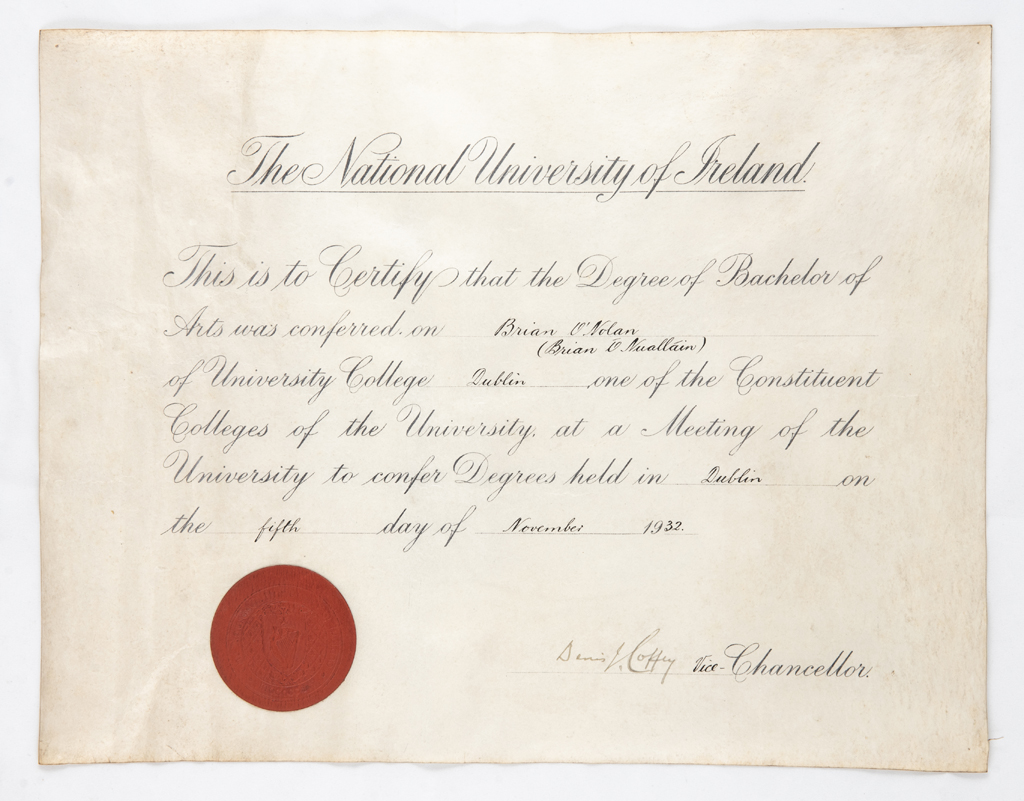 The National University of Ireland.
This is to Certify that the Degree of Bachelor of
Arts was conferred on Brian O'Nolan
(Brian Ó Nualláin)
of University College Dublin, one of the Constituent
Colleges of the University, at a Meeting of the
University to confer Degrees held in Dublin on
the fifth day of November 1932.
Denis J. Coffey Vice-Chancellor.